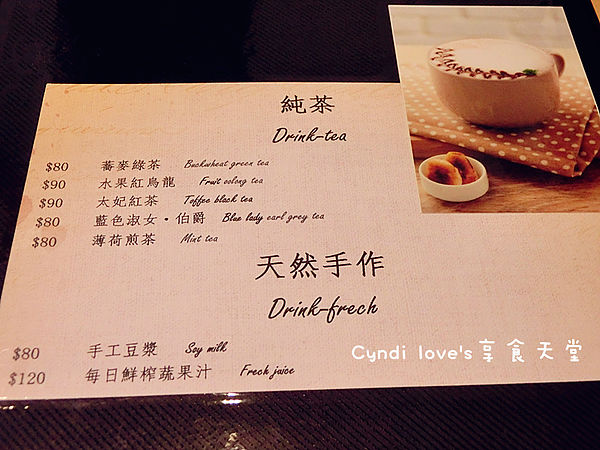 純茶
Drink-tea
$80 蕎麥綠茶 Buckwheat green tea
$90 水果紅烏龍 Fruit oolong tea
$90 太妃紅茶 Toffee black tea
$80 藍色淑女・伯爵 Blue lady earl grey tea
$80 薄荷煎茶 Mint tea
天然手作
Drink-frech
$80 手工豆漿 Soy milk
$120 每日鮮榨蔬果汁 Frech juice
Cyndi love's享食天堂